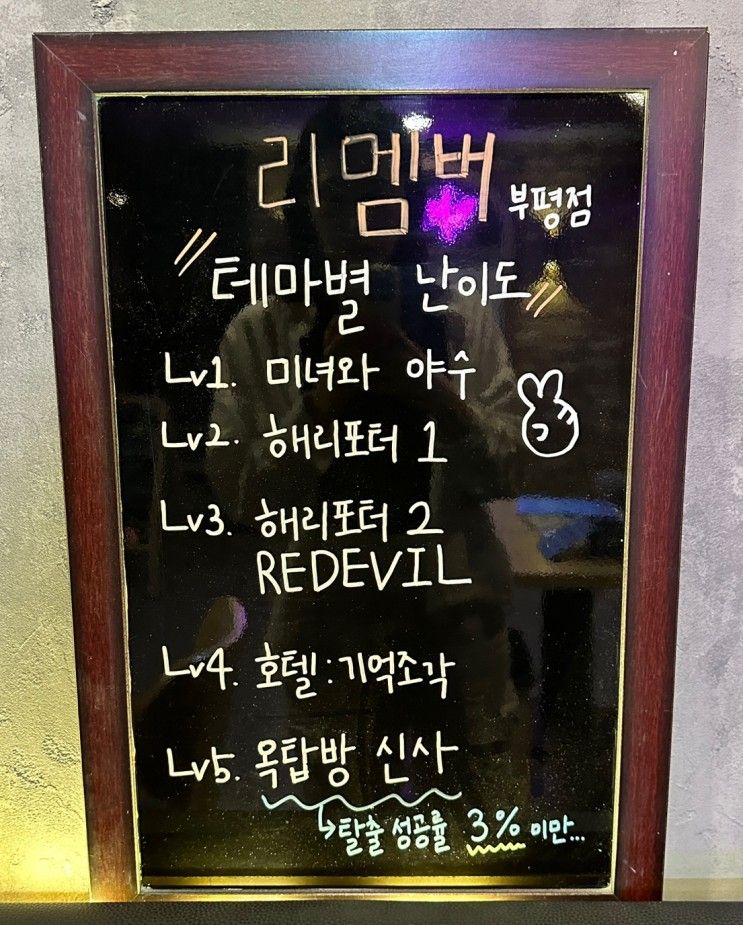 리멤버 부평점
〃테마별 난이도〃
Lv1. 미녀와 야수
Lv2. 해리포터 1
Lv3. 해리포터 2
REDEVIL
Lv4. 호텔:기억조각
Lv5. 옥탑방 신사
↳탈출 성공률 3% 미만...